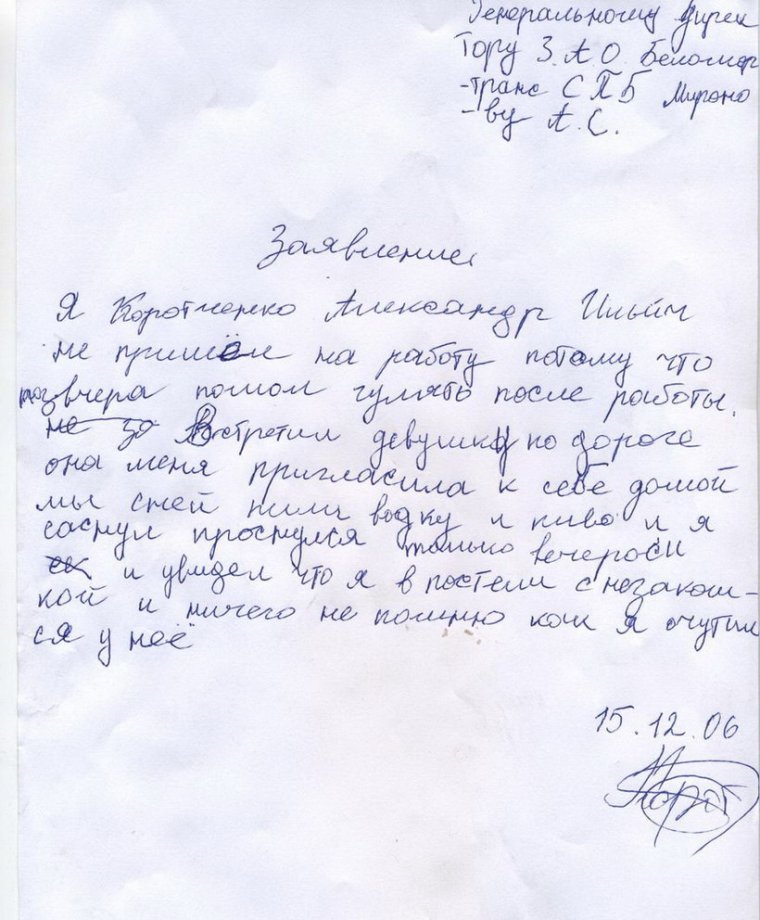 Генеральному Дирек
тору З.А О. Беломор
-транс С П Б Мироно
-ву А.С.
Заявление
Я Коротченко Александр Ильич
не пришёл на работу потому что
вчера пошол гулять после работы.
не за Встретил девушку по дороге
она меня пригласила к себе домой
мы сней пили водку и пиво и я
заснул проснулся только вечером
и увидел что я в постели с незаком-
кой и ничего не помню как я очутил
ся у неё
15.12.06